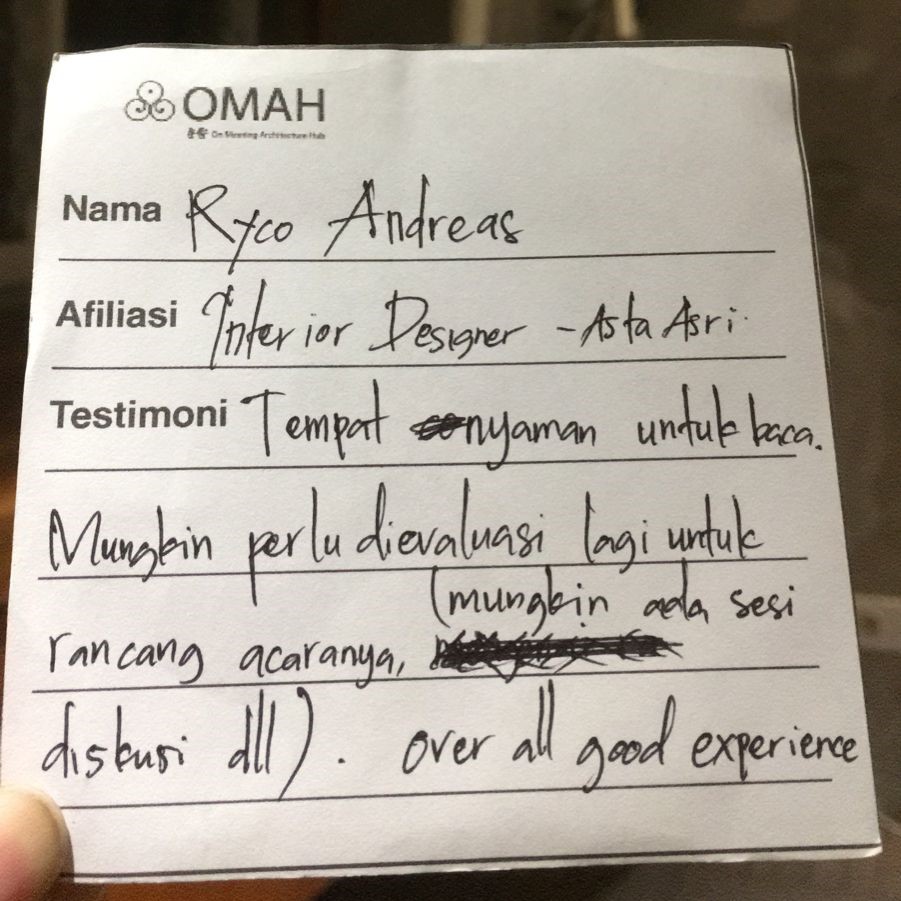 OMAH
On Meeting Architecture Hub
Nama Ryco Andreas
Afiliasi Interior Designer - Asta Asri.
Testimoni Tempat nyaman untuk baca.
Mungkin perlu dievaluasi lagi untuk
rancang acaranya, (mungkin ada sesi
diskusi dll). over all good experience